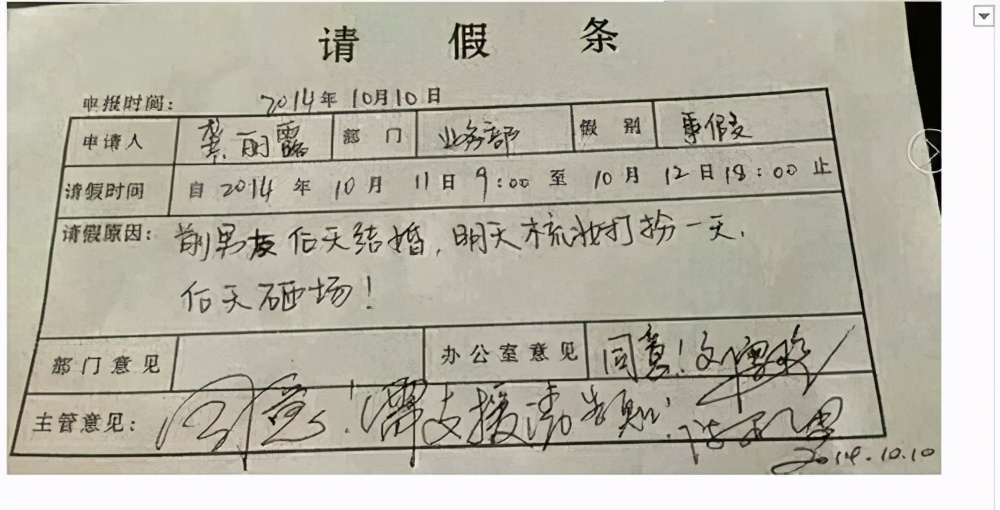 请假条
申报时间： 2014年10月10日
申请人 龚丽霞 部门 业务部 假别 事假
请假时间 自2014年10月11日9:00至10月12日18:00止
请假原因： 前男友后天结婚，明天梳妆打扮一天，
后天砸场！
部门意见 办公室意见 同意！
主管意见： 同意！需支援请告知！
2014.10.10